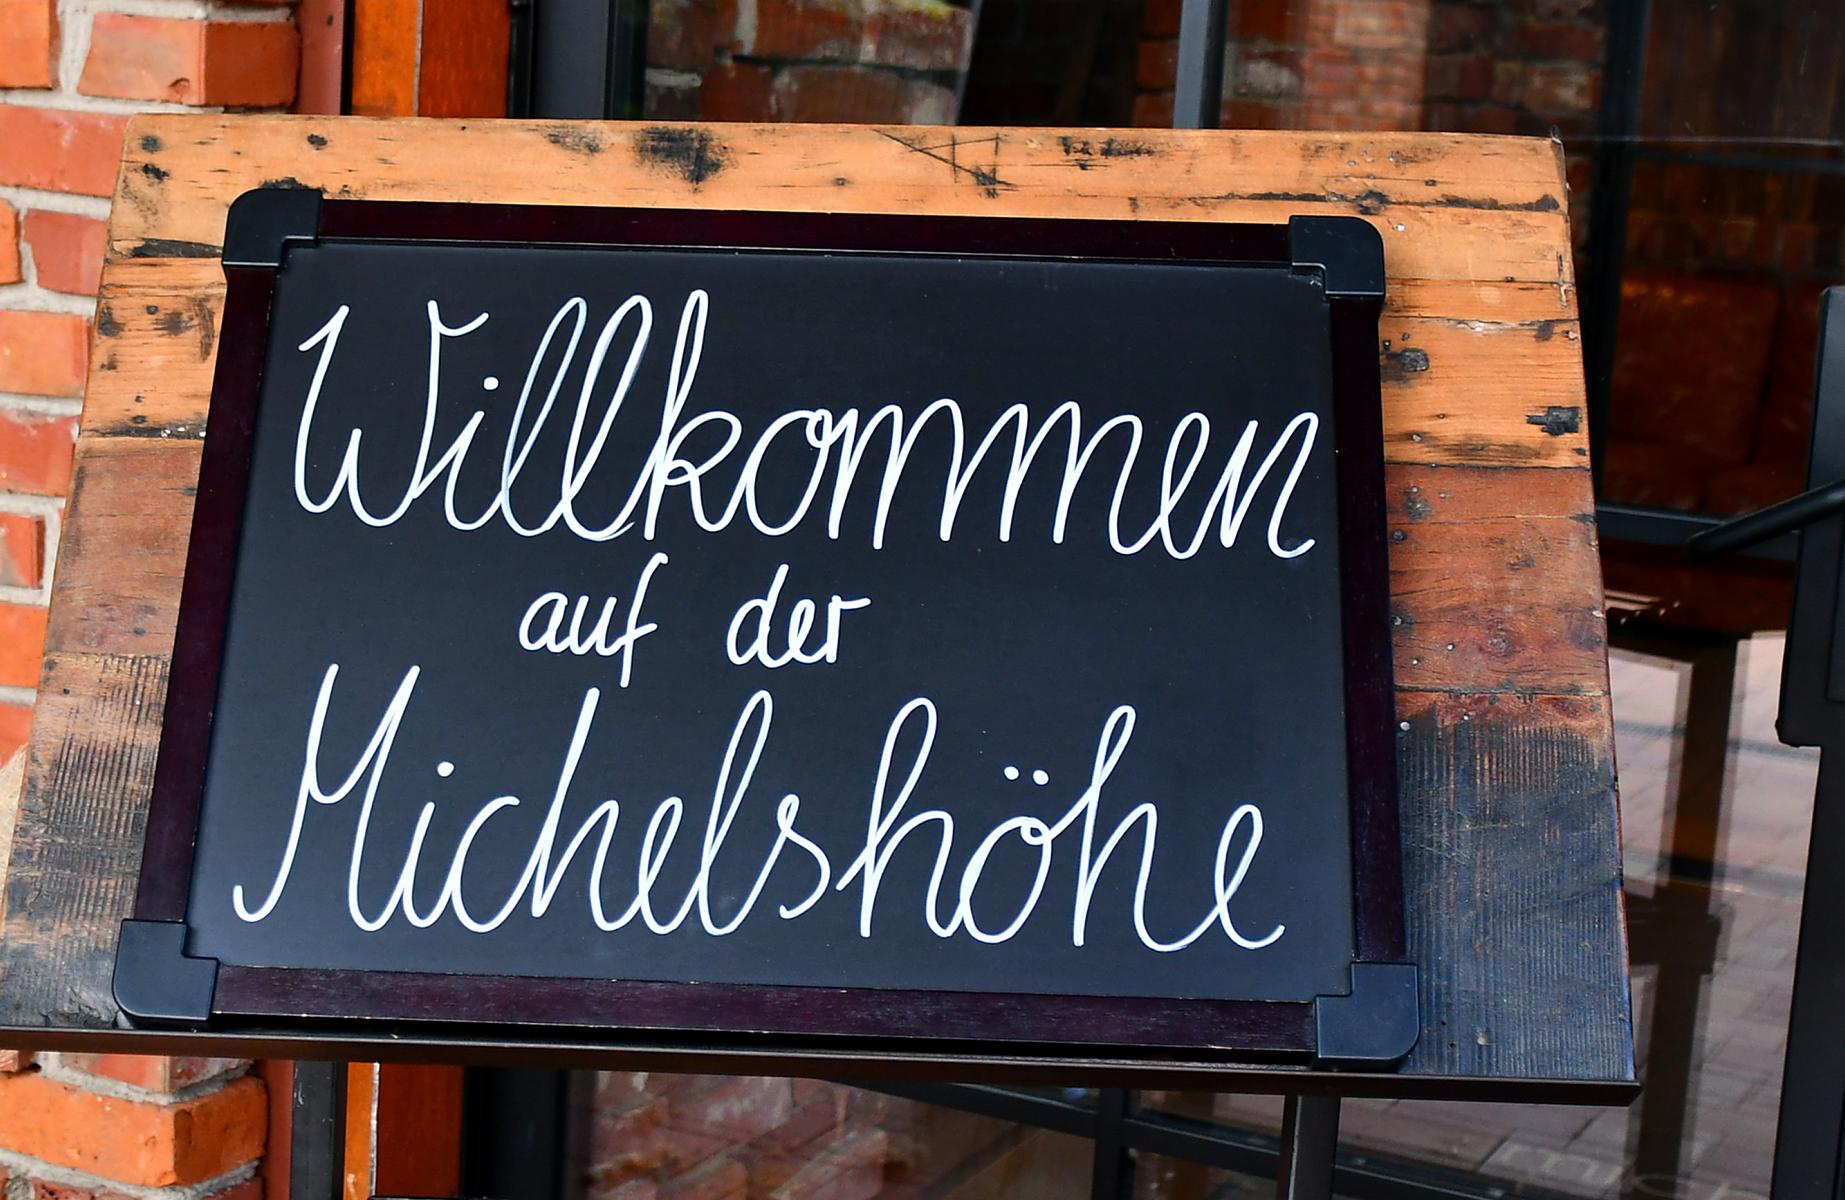 Willkommen
auf der
Michelshöhe